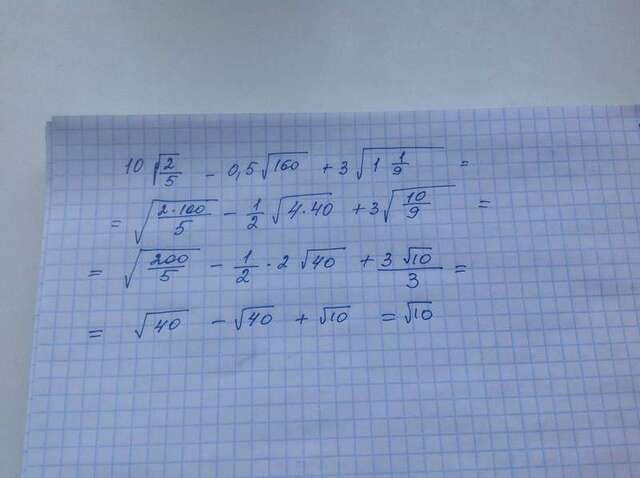 10 √(2/5) - 0,5 √160 + 3 √(1 1/9) =
= √(2·100/5) - 1/2 √(4·40) + 3 √(10/9) =
= √(200/5) - 1/2 · 2 √40 + 3√10/3 =
= √40 - √40 + √10 = √10